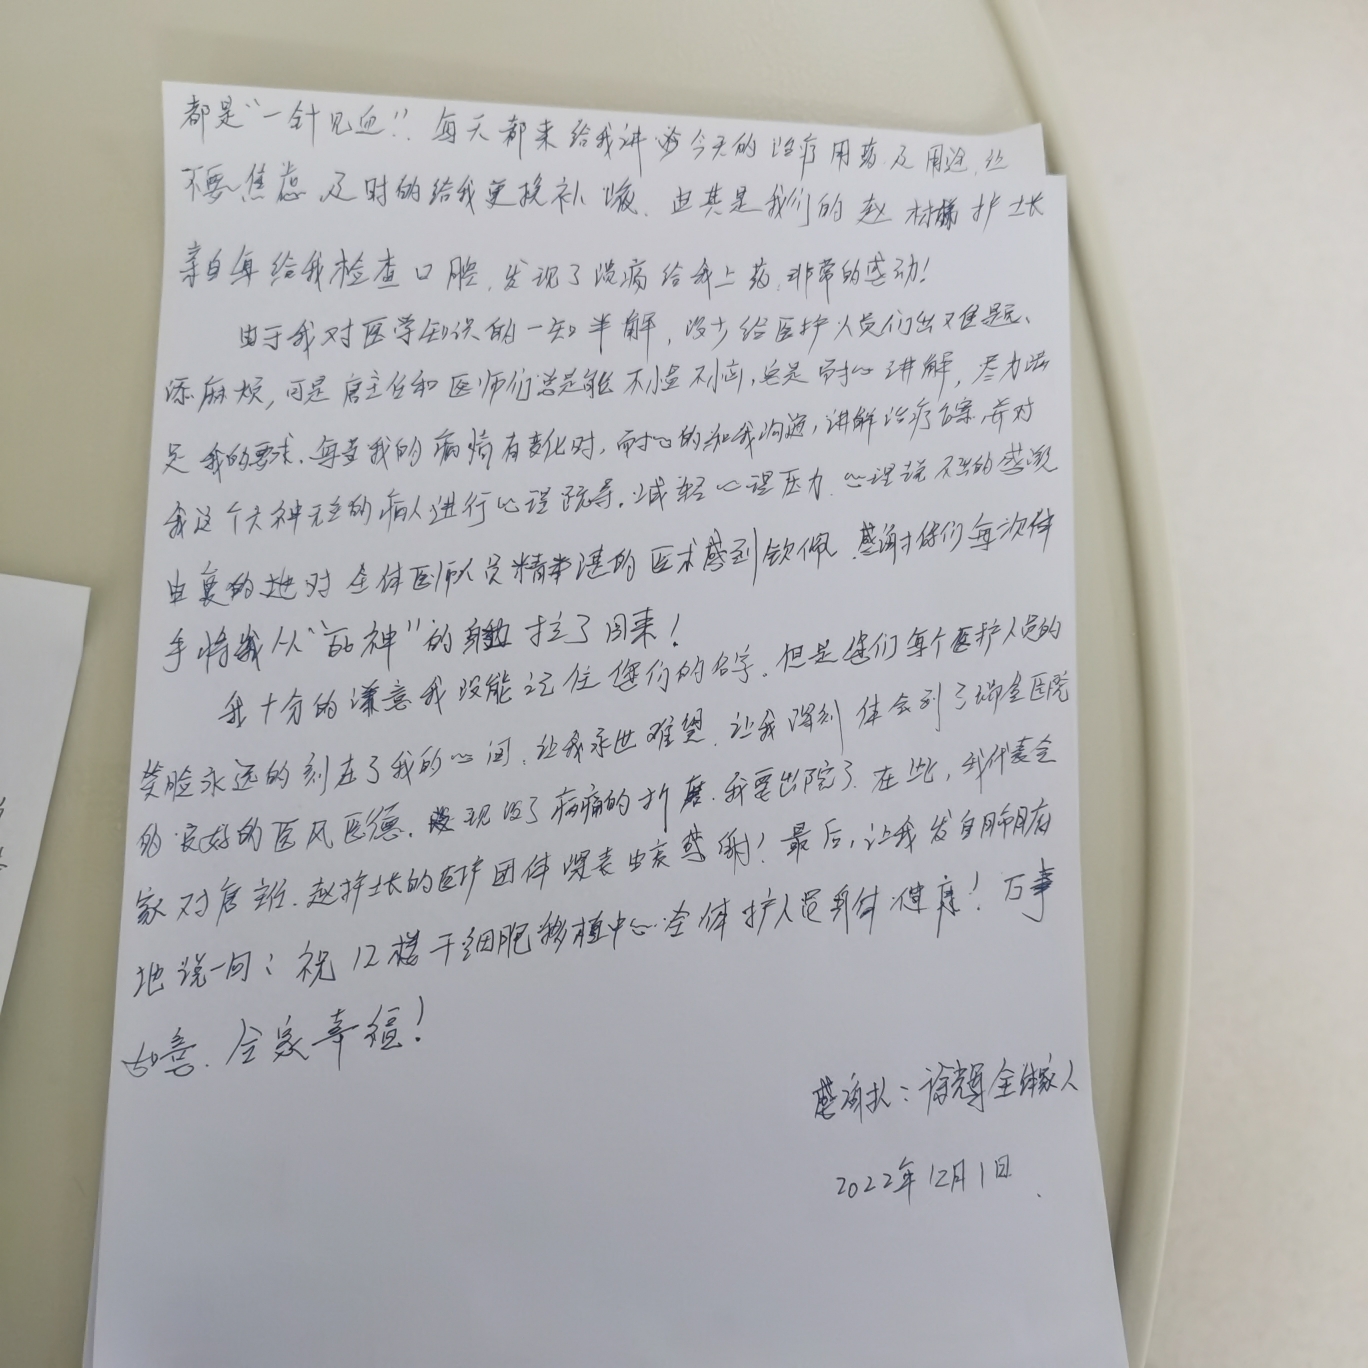 都是“一针见血”。每天都来给我讲解今天的治疗用药及用途,让
不要焦虑 及时的给我更换补液、由其是我们的赵 护士长
亲自每给我检查口腔,发现了溃疡给我上药,非常的感动!
由于我对医学知识的一知半解,没少给医护人员们出难题、
添麻烦,可是唐主任和医师们总是能不 不 ,总是耐心讲解,尽力满
足我的要求。每当我的病情有变化时,耐心的和我沟通,讲解治疗方案,并对
我这个六神无主的病人进行心理疏导,减轻心理压力,心理说不出的感激
由衷的地对全体医师队员精湛的医术感到钦佩 感谢你们每次伸
手将我从“死神”的身边拉了回来!
我十分的谦意我没能记住您们的名字,但是您们每个医护人员的
笑脸永远的刻在了我的心间,让我永世难望,让我深刻体会到了瑞金医院
的良好的医风医德。现没了病痛的折磨,我要出院了 在此,我代表全
家对唐主任、赵护士长的医护团体 表由衷感谢!最后,让我发自肺腑
地说一句:祝12楼干细胞移植中心全体护人员身体健康!万事
如意、全家幸福!
感谢人:徐辉全体家人
2022年12月1日